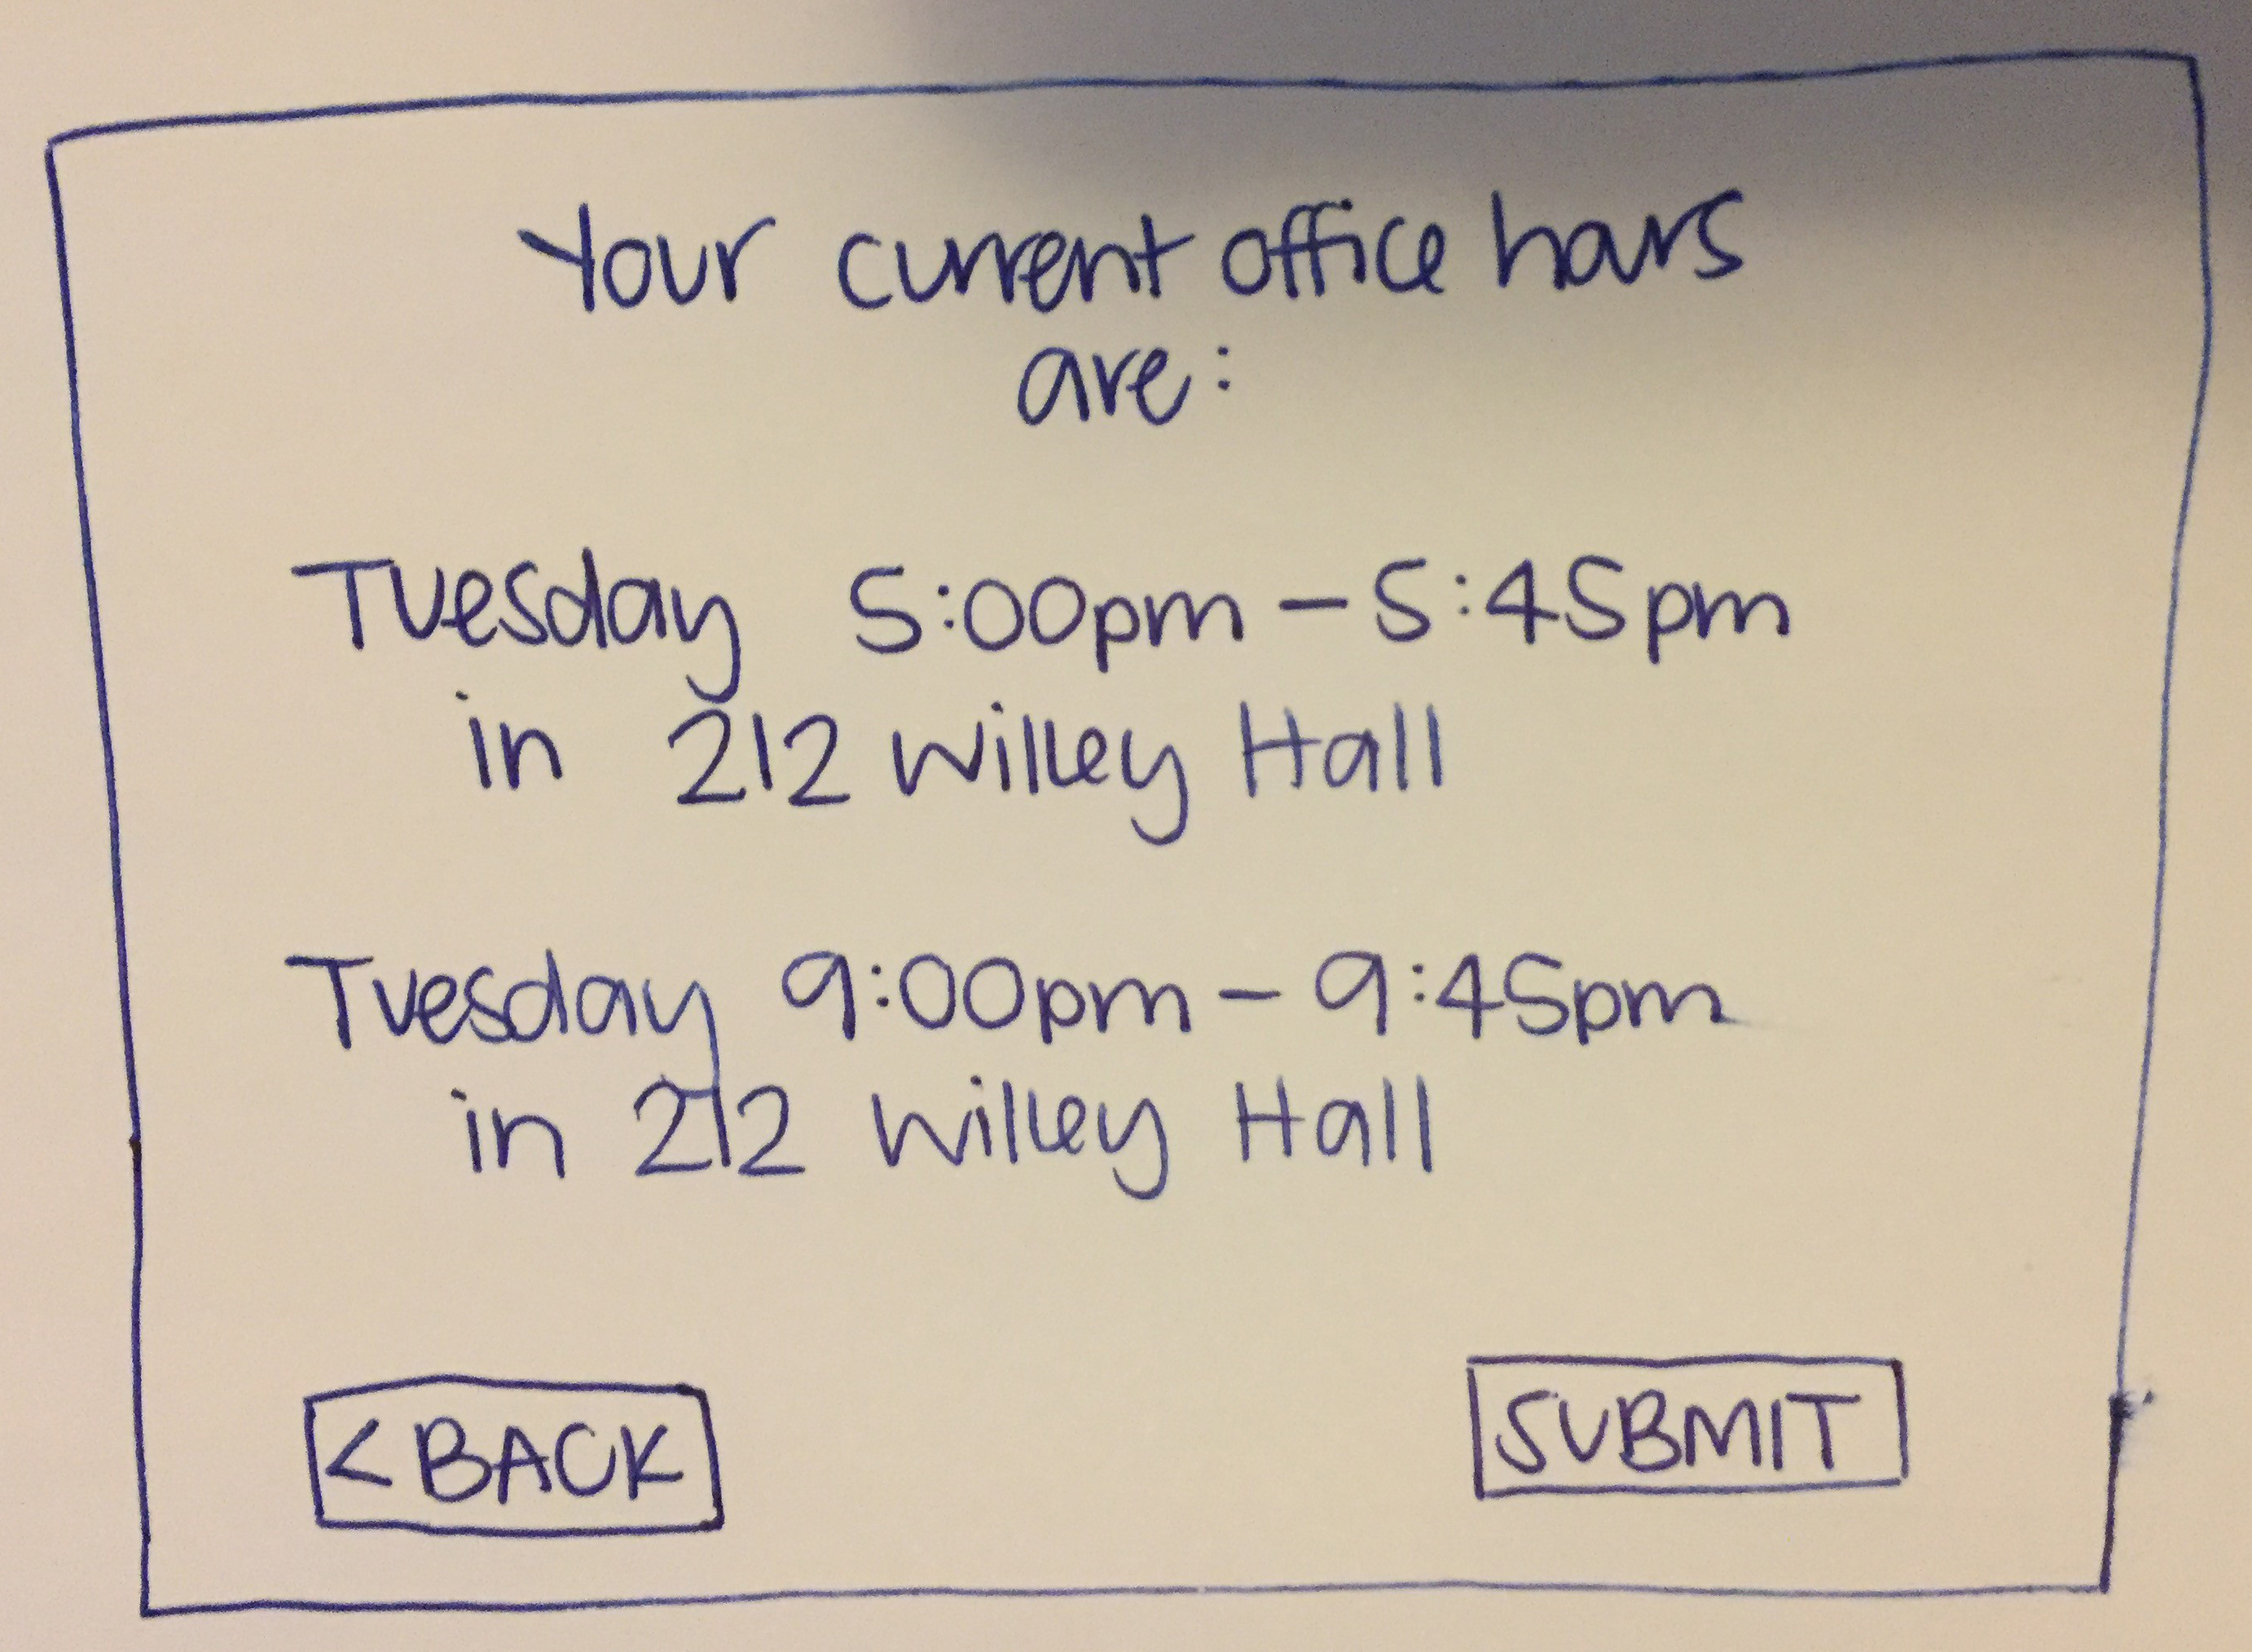 Your current office hours
are:
Tuesday 5:00pm - 5:45pm
in 212 Willey Hall
Tuesday 9:00pm - 9:45pm
in 212 Willey Hall
< BACK
SUBMIT